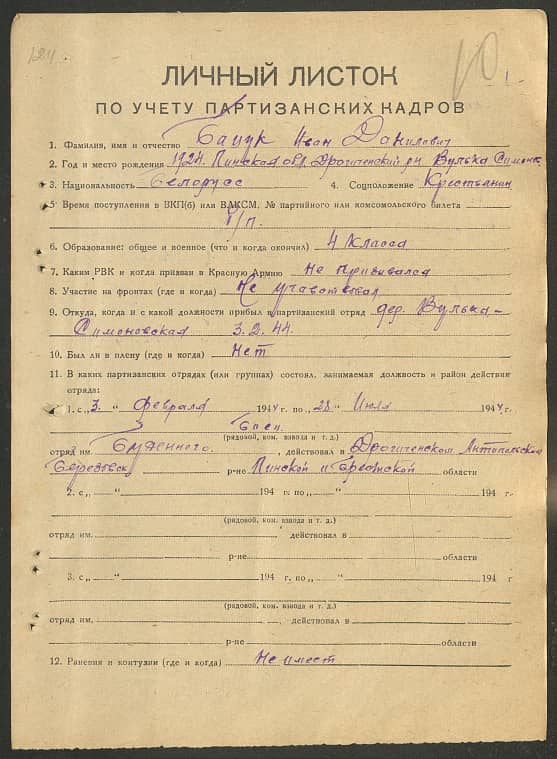 ЛИЧНЫЙ ЛИСТОК
ПО УЧЕТУ ПАРТИЗАНСКИХ КАДРОВ
1. Фамилия, имя и отчество Бацук Иван Данилович
2. Год и место рождения 1924. Пинская обл. Дрогиченский р-н Вулька Симонов.
3. Национальность белорусс 4. Соцположение Крестьянин
5. Время поступления в ВКП(б) или ВЛКСМ, № партийного или комсомольского билета
б/п.
6. Образование: общее и военное (что и когда окончил) 4 класса
7. Каким РВК и когда призван в Красную Армию Не призывался
8. Участие на фронтах (где и когда) Не учавствовал
9. Откуда, когда и с какой должности прибыл в партизанский отряд дер. Вулька-
Симоновская 3.2.44.
10. Был ли в плену (где и когда) Нет
11. В каких партизанских отрядах (или группах) состоял, занимаемая должность и район действия
отряда:
1. с „3. “ Февраля 1944 г. по „28 “ Июля 1944 г.
Боец.
(рядовой, ком. взвода и т. д.)
отряд им. Буденного. , действовал в Дрогиченском Антопольском
р-не Пинской и Брестской области
2. с „ “ 194 г. по „ “ 194 г.
(рядовой, ком. взвода и т. д.)
отряд им. , действовал в
р-не области
3. с „ “ 194 г. по „ “ 194 г
(рядовой, ком. взвода и т. д.)
отряд им. , действовал в
р-не области
12. Ранения и контузии (где и когда) Не имеет